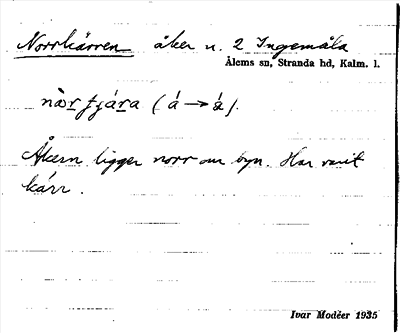 Norrkärren åker n. 2 Ingemåla
Ålems sn, Stranda hd, Kalm. l.
nàr̲ t̠jár̲a (á → á̤).
Åkern ligger norr om byn. Har varit
kärr.
Ivar Modéer 1935